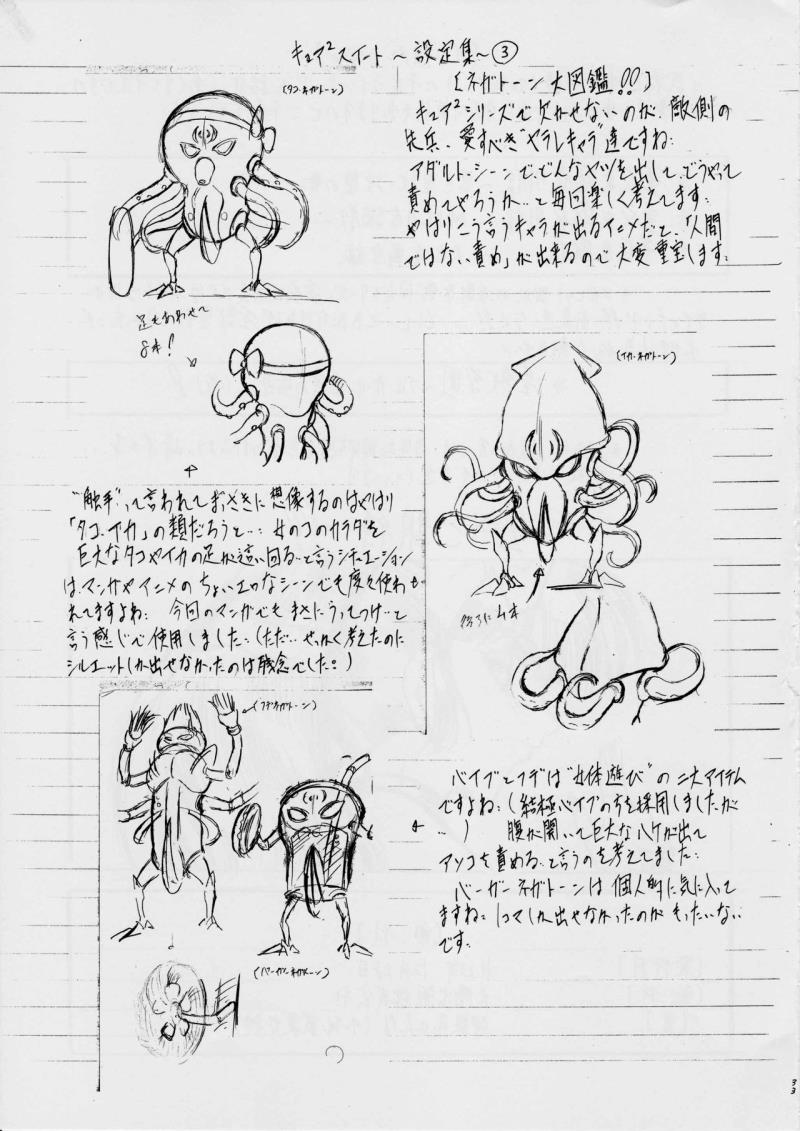 キュア²スイート ～設定集～③
〔ネガトーン大図鑑!!〕
(タコ・ネガトーン)
キュア²シリーズで欠かせないのが、敵側の
先兵、愛すべき"ヤラレキャラ"達ですね。
アダルト・シーンで、どんなヤツを出して、どうやって
責めてやろうか…と毎回楽しく考えてます。
やはりこう言うキャラが出るアニメだと、「人間
ではない責め」が出来るので大変重宝します。
足もあわせて
8本!
(イカ・ネガトーン)
"触手"って言われてまっさきに想像するのはやはり
「タコ、イカ」の類だろうと…。女のコのカラダを
巨大なタコやイカの足が這い回る…と言うシチュエーション
は、マンガやアニメのちょいエロなシーンでも度々使わ
れてますよね。 今回のマンガでもまさにうってつけ…と
言う感じで使用しました。(ただ…せっかく考えたのに
シルエットしか出せなかったのは残念でした。)
(フデ・ネガトーン)
(バーガー・ネガトーン)
バイブとフデは"体遊び"の二大アイテム
ですよね。(結極バイブの方を採用しましたが
…) 腹が開いて巨大なハケが出て
アソコを責める…と言うのを考えてました。
バーガーネガトーンは個人的に気に入って
ますね。1コマしか出せなかったのがもったいない
です。
33